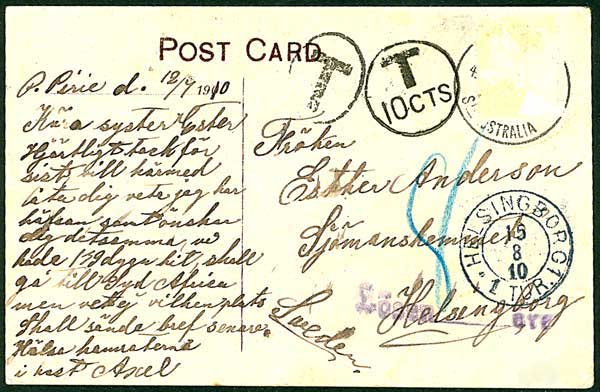 POST CARD
T
T
10 CTS
STH AUSTRALIA
P. Pirie d. 12/7 1910
Kära syster Ester
Hjärtligt tack for
sist vill härmed
låta dig veta jag har
hälsan samt önskar
dig detsamma, vi
hade 129 dyga hit, skall
gå till Syd Africa
men vet ej vilken plats
Skall sända bref senare
Hälsa kamraterna
i hast Axel
Fröken
Esther Anderson
Sjömanshemmet
Helsengborg
Sweden
HELSINGBORG 1.
15
8
10
1 TUR.
Lösen
öre